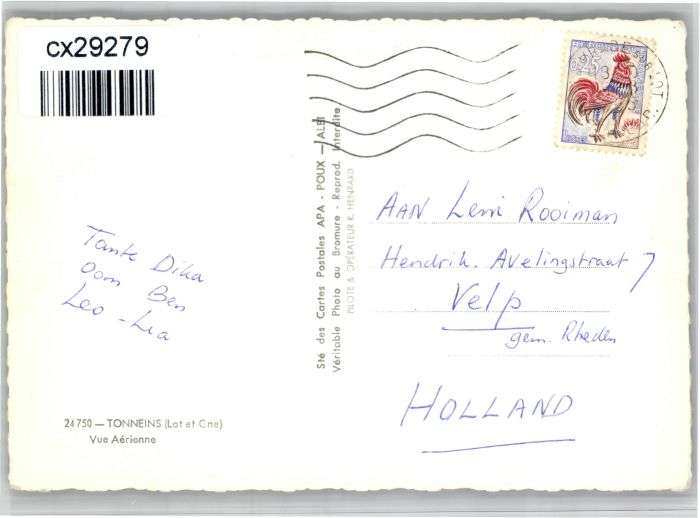 cx29279
Tante Dika
Oom Ben
Leo - Lia
24 750 — TONNEINS (Lot et Gne)
Vue Aérienne
Sté des Cartes Postales APA - POUX — ALBI
Véritable Photo au Bromure - Reprod. Interdite
PILOTE & OPÉRATEUR R. HENRARD
AAN Leni Rooiman
Hendrik. Avelingstraat 7
Velp
gem. Rheden
HOLLAND